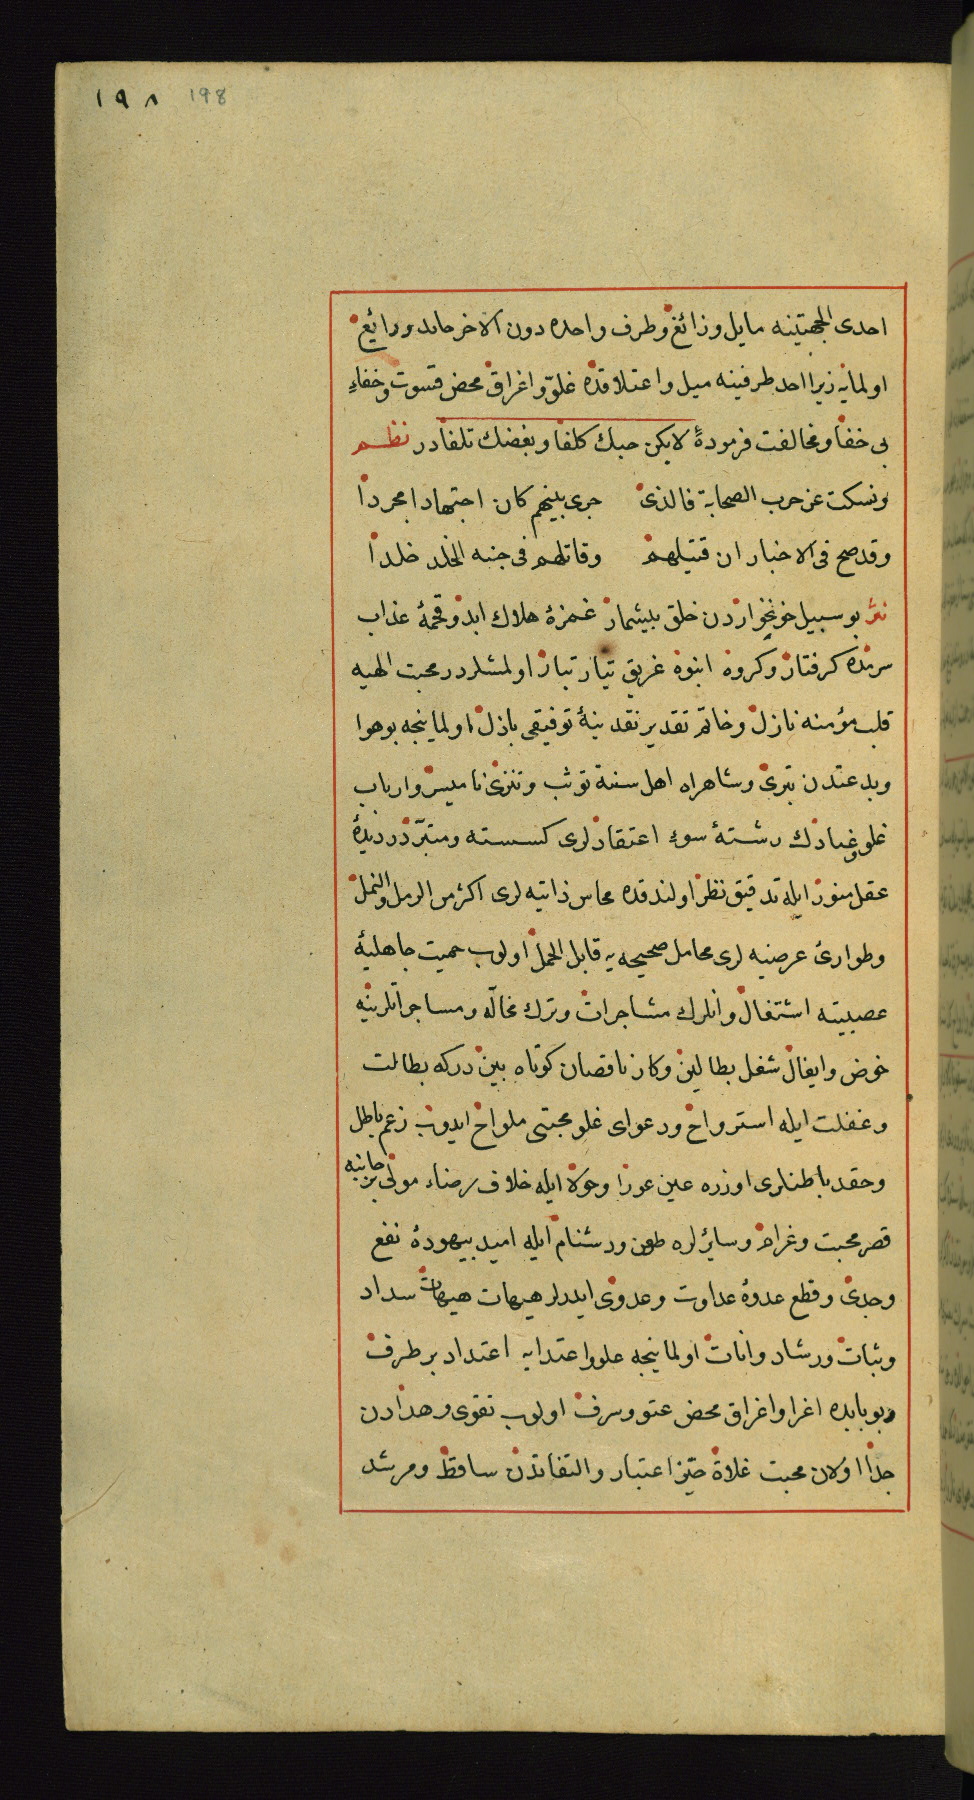 ١٩٨ 198
احدى الجهتينه مايل وزائغ وطرف واحده دون الاخر حايد ورايغ
اولمايه زيرا احد طرفينه ميل واعتلاقده غلو واغراق محض قسوت وخفاء
بى خفا ومخالفت فرمودهٔ لا يكن حبك كلفا وبغضك تلفا در نظم
ونسكت عن حرب الصحابة فالذى جرى بينهم كان اجتهادا مجردا
وقد صح فى الاخبار ان قتيلهم وقاتلهم فى جنه الخلد خلدا
نثر بو سبيل خونخواردن خلق بيشمار غمزهٔ هلاك ابد وقحمهٔ عذاب
سرمده كرفتار وكروه انبوه غريق تيار تبار اولمشلردر محبت الهيه
قلب مؤمنه نازل وخاتم تقدير نقدينهٔ توفيقى باذل اولماينجه بو هوا
وبدعتدن تبرى وشاهراه اهل سنة توثب وتنزى ناميسر وارباب
غلو وغبارك رشتهٔ سوء اعتقادلرى كسسته ومتبردر ديدهٔ
عقل منور ايله تدقيق نظر اولندقده محاسن ذاتيه لرى اكثر من الرمل والنمل
وطوارئ عرضيه لرى محامل صحيحه يه قابل الحمل اولوب حميت جاهليهٔ
عصبيته اشتغال وانلرك مشاجرات وترك مخاله ومساجراتلرينه
خوض وايغال شغل بطالين وكار ناقصان كوتاه بين دركه بطالت
وغفلت ايله استرواخ ودعواى غلو محبتى ملواخ ايدوب زعم باطل
وحقد باطنلرى اوزره عين عورا وحولا ايله خلاف رضاء مولى بر جانبه
قصر محبت وغرام وسايرلره طعن ودشنام ايله اميد بيهودهٔ نفع
وجدى وقطع عدوهٔ عداوت وعدوى ايدرلر هيهات هيهات سداد
وثبات ورشاد وانات اولماينجه علو واعتدايه اعتداد بر طرف
بو بابده اغرا واغراق محض عتو وسرف اولوب تقوى وهدادن
جدا اولان محبت غلاة حيز اعتبار والتفاتدن ساقط ومرشد